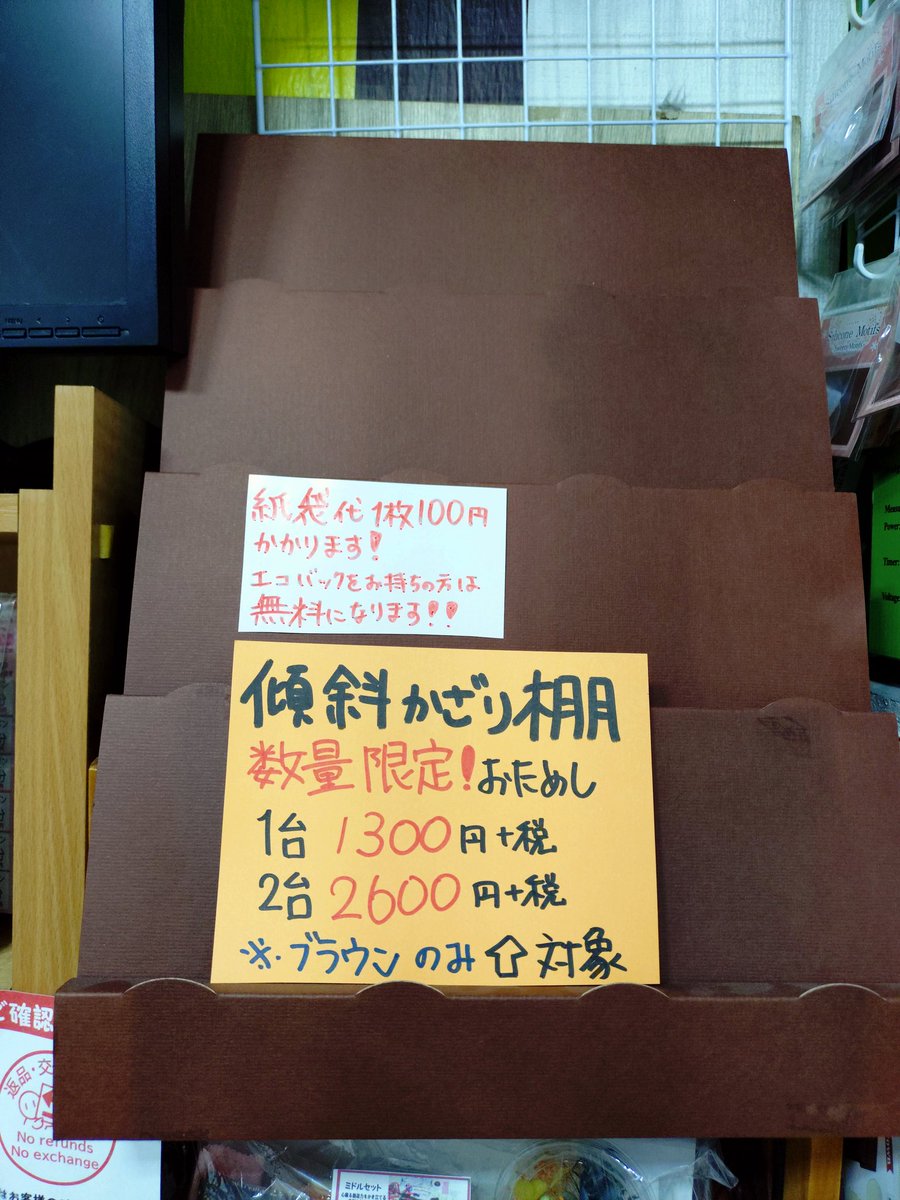 紙袋代1枚100円
かかります!
エコバックをお持ちの方は
無料になります!!
傾斜かざり棚
数量限定!おためし
1台 1300円+税
2台 2600円+税
※・ブラウンのみ⇧対象
Silicone Motifs
Silicone Motifs
Power:
Timer:
Voltage
ご確認
返品・交
No refunds
No exchange
ミドルセット